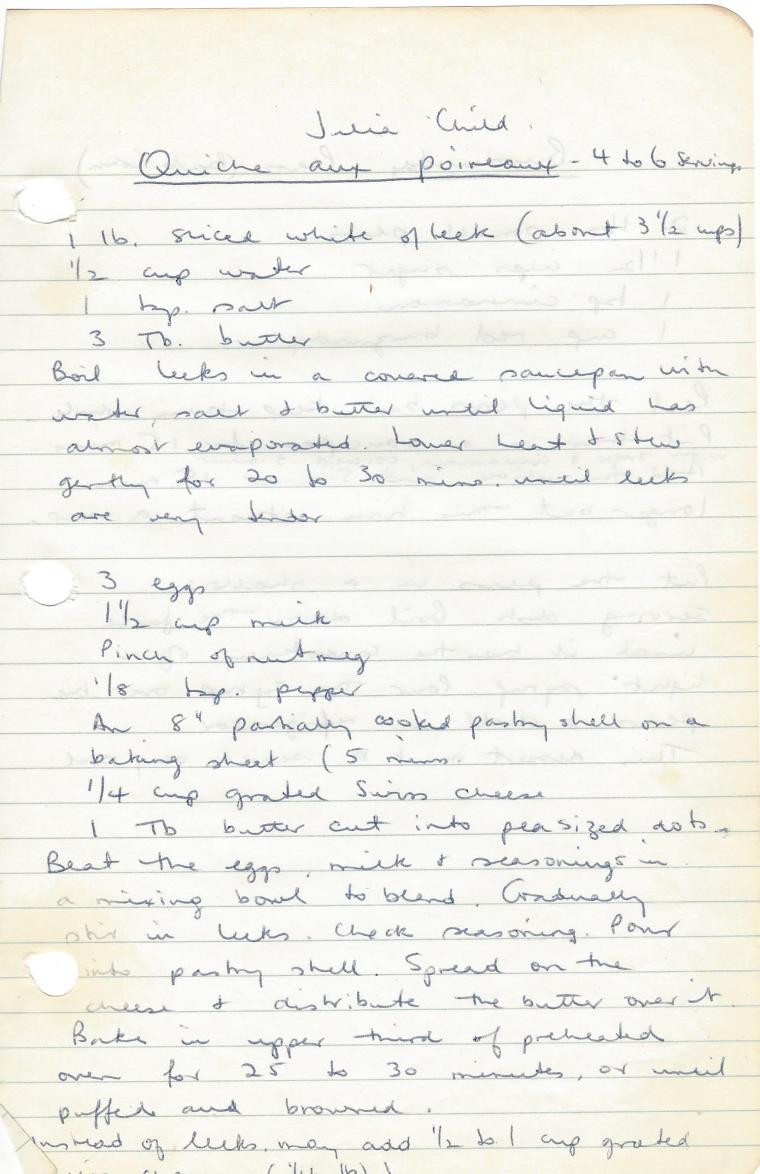 Julia Child.
Quiche aux poireaux - 4 to 6 servings
1 lb. sliced white of leek (about 3 1/2 cups)
1/2 cup water
1 tsp. salt
3 Tb. butter
Boil leeks in a covered saucepan with
water, salt & butter until liquid has
almost evaporated. Lower heat & stew
gently for 20 to 30 mins. until leeks
are very tender
3 eggs
1 1/2 cup milk
Pinch of nutmeg
1/8 tsp. pepper
An 8" partially cooked pastry shell on a
baking sheet (5 mins.
1/4 cup grated Swiss cheese
1 Tb butter cut into pea sized dots.
Beat the eggs, milk & seasonings in
a mixing bowl to blend. Gradually
stir in leeks. Check seasoning. Pour
into pastry shell. Spread on the
cheese & distribute the butter over it.
Bake in upper third of preheated
oven for 25 to 30 minutes, or until
puffed and browned.
Instead of leeks, may add 1/2 to 1 cup grated
(1/4 lb)